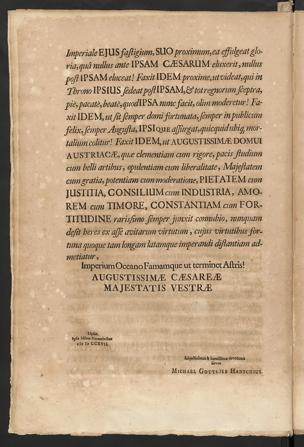 Imperiale EJUS fastigium, SUO proximum, ea effulgeat glo-
ria, quâ nullus ante IPSAM CÆSARUM eluxerit, nullus
post IPSAM eluceat! Faxit IDEM proxime, ut videat, qui in
Throno IPSIUS sedeat post IPSAM, & tot regnorum sceptra,
piè, pacatè, beatè, quod IPSA nunc facit, olim moderetur! Fa-
xit IDEM, ut sit semper domi fortunata, semper in publicum
felix, semper Augusta, IPSIque assurgat, quicquid ubiq; mor-
talium colitur! Faxit IDEM, ut AUGUSTISSIMÆ DOMUI
AUSTRIACÆ, quæ clementiam cum rigore, pacis studium
cum belli artibus, opulentiam cum liberalitate, Majestatem
cum gratia, potentiam cum moderatione, PIETATEM cum
JUSTITIA, CONSILIUM cum INDUSTRIA, AMO-
REM cum TIMORE, CONSTANTIAM cum FOR-
TITUDINE rarissimo semper junxit connubio, nunquam
desit heres ex asse avitarum virtutum, cujus virtutibus for-
tuna quoque tam longam latamque imperandi distantiam ad-
metiatur,
Imperium Oceano Famamque ut terminet Astris!
AUGUSTISSIMÆ CÆSAREÆ
MAJESTATIS VESTRÆ
Lipsiæ,
MICHAEL GOTTLIEB HANSCHIUS.